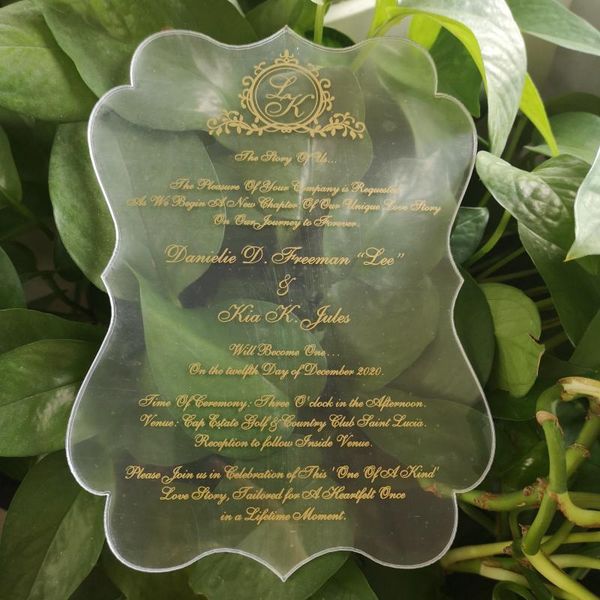 L
K
The Story Of Us...
The Pleasure Of Your Company is Requested
As We Begin A New Chapter Of Our Unique Love Story
On Our Journey to Forever.
Danielie D. Freeman "Lee"
&
Kia K. Jules
Will Become One...
On the twelfth Day of December 2020.
Time Of Ceremony: Three O'clock in the Afternoon.
Venue: Cap Estate Golf & Country Club Saint Lucia.
Reception to follow Inside Venue.
Please Join us in Celebration of This 'One Of A Kind'
Love Story, Tailored for A Heartfelt Once
in a Lifetime Moment.